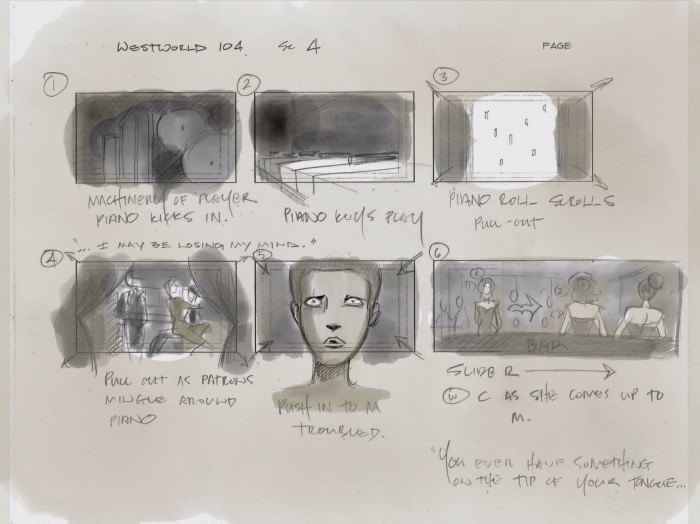 WESTWORLD 104. SC 4 PAGE
1 2 3
MACHINERY OF PLAYER
PIANO KICKS IN.
PIANO KEYS PLAY
PIANO ROLL SCROLLS
PULL-OUT
"... I MAY BE LOSING MY MIND."
4 5 6
PULL OUT AS PATRONS
MINGLE AROUND
PIANO
PUSH IN TO M
TROUBLED.
BAR
SLIDE R
W C AS SHE COMES UP TO
M.
"YOU EVER HAVE SOMETHING
ON THE TIP OF YOUR TONGUE...